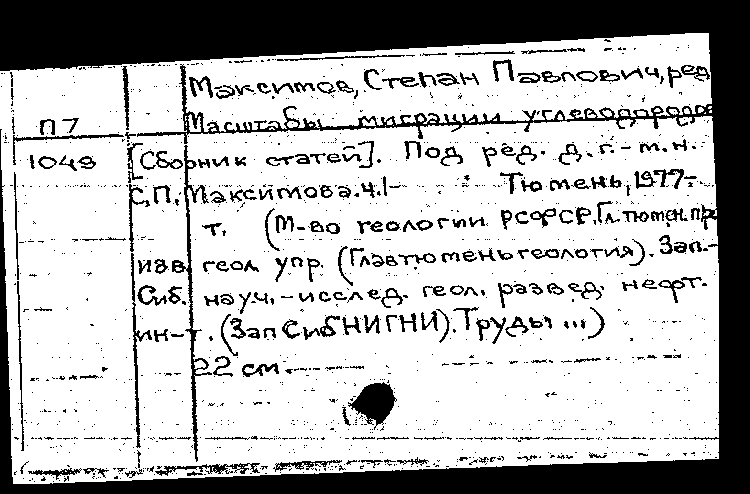 Максимов, Степан Павлович, ред.
П7 Масштабы миграции углеводородов
1049 [Сборник статей]. Под ред. д.г.-м.н.
С.П. Максимова. Ч.1- Тюмень, 1977-
т. (М-во геологии РСФСР. Гл. тюмен. про
изв. геол. упр. (Главтюменьгеология). Зап.-
Сиб. науч.-исслед. геол. развед. нефт.
ин-т. (ЗапСибНИГНИ). Труды ...)
22 см.